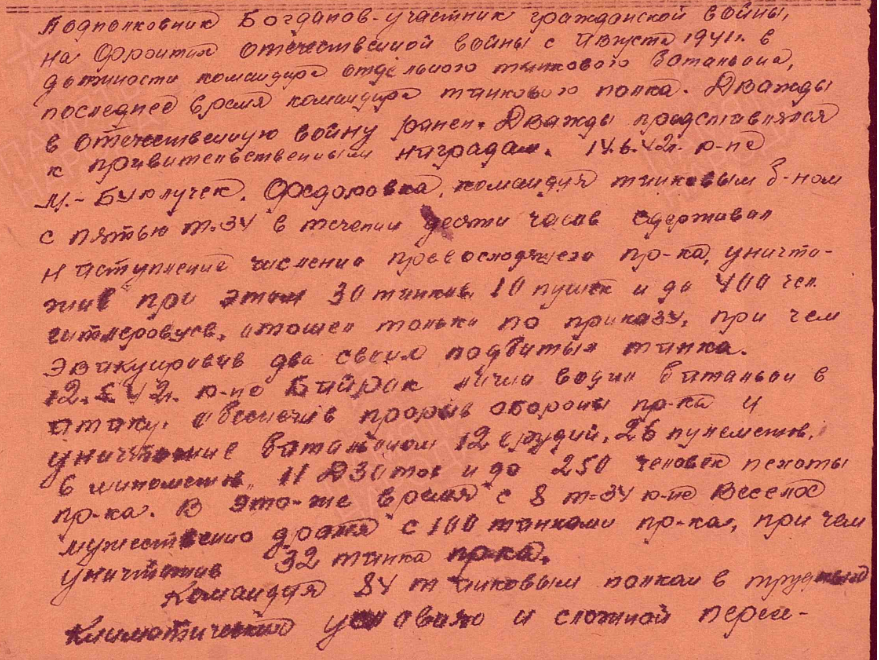 Подполковник Богданов-участник гражданской войны,
на фронтах отечественной войны с августа 1941г. в
должности командира отдельного танкового батальона,
последнее время командира танкового полка. Дважды
в отечественную войну ранен. Дважды представлялся
к правительственным наградам. 14.6.42г. р-не
М.-Бурлучек. Федоровка, командуя танковым б-ном
с пятью т-34 в течении десяти часов сдерживал
наступление числено превосходящего пр-ка, уничто-
жив при этом 30 танков, 10 пушек и до 400 чел.
гитлеровцев. отошел только по приказу, при чем
эвакуировав два своих подбитых танка.
12.5.42г. р-не Байрак лично водил батальон в
атаку, обеспечив прорыв обороны пр-ка и
уничтожение батальоном 12 орудий, 26 пулеметов,
6 минометов, 11 ДЗОТов и до 250 человек пехоты
пр-ка. В это-же время с 8 т-34 р-не Веселое
мужественно дрался с 100 танками пр-ка, при чем
уничтожив 32 танка пр-ка.
Командуя 84 танковым полком в трудных
климатических условиях и сложной пере-